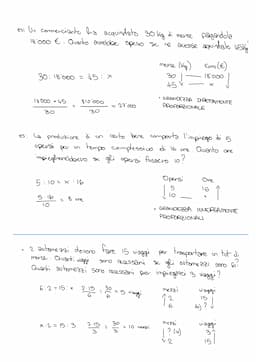 es: Un commerciante ha acquistato 30 kg di merce pagandola
18'000 €. Quanto avrebbe speso se ne avesse acquistato 45 kg?
merce (kg) costo (€)
30 : 18'000 = 45 : x
30 18'000
45 x
18'000 × 45 / 30 = 810'000 / 30 = 27'000
→ GRANDEZZE DIRETTAMENTE
PROPORZIONALI
es: La produzione di un certo bene comporta l'impiego di 5
operai per un tempo complessivo di 16 ore. Quante ore
impiegherebbero se gli operai fossero 10?
Operai Ore
5 : 10 = x : 16
5 16
10 x
5·16 / 10 = 8 ore
→ GRANDEZZE INVERSAMENTE
PROPORZIONALI
2 automezzi devono fare 15 viaggi per trasportare un tot di
merce. Quanti viaggi sono necessari se gli automezzi sono 6?
Quanti automezzi sono necessari per impiegarci 3 viaggi?
mezzi viaggi
6 : 2 = 15 : x 2·15 / 6 = 30 / 6 = 5 viaggi
2 15
6
mezzi viaggi
x : 2 = 15 : 3 2·15 / 3 = 30 / 3 = 10
2 15